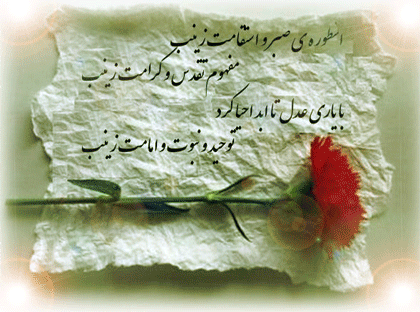 اسطوره ی صبر و استقامت زینب
مفهوم تقدس و کرامت زینب
با یاری عدل تا ابد احیا کرد
توحید و نبوت و امامت زینب